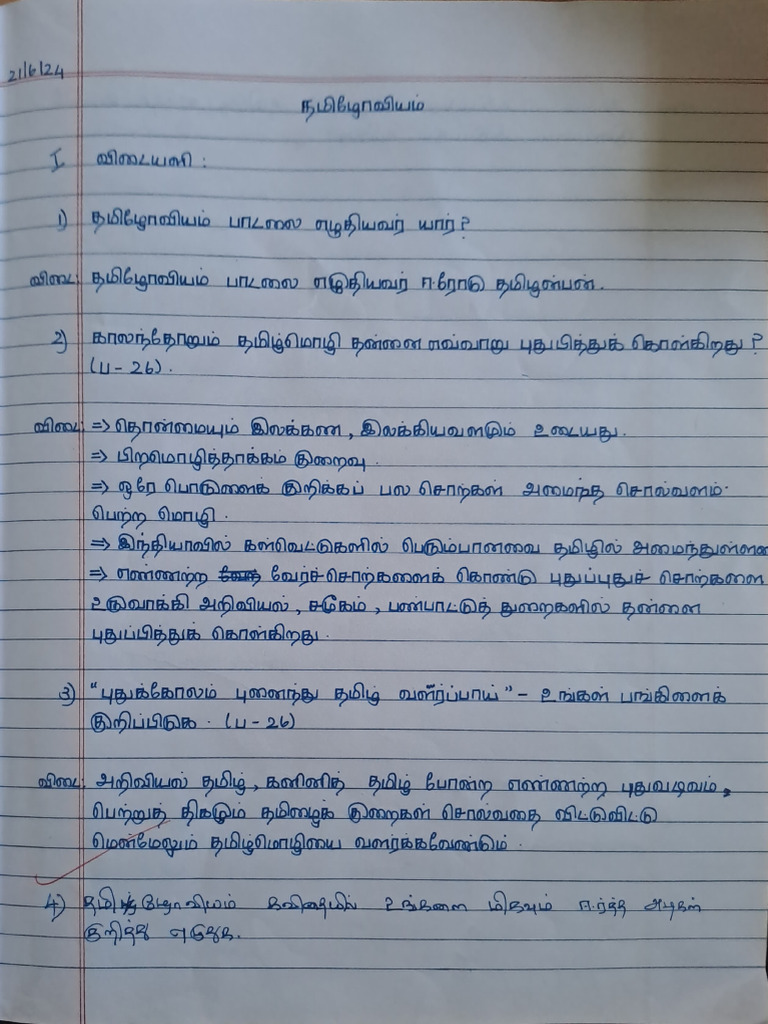 21/6/24
தமிழோவியம்
I விடையளி :
1) தமிழோவியம் பாடலை எழுதியவர் யார்?
விடை: தமிழோவியம் பாடலை எழுதியவர் ஈரோடு தமிழன்பன்.
2) காலந்தோறும் தமிழ்மொழி தன்னை எவ்வாறு புதுபித்துக் கொள்கிறது?
(ப - 26).
விடை: => தொன்மையும் இலக்கண, இலக்கியவளமும் உடையது.
=> பிறமொழித்தாக்கம் குறைவு.
=> ஒரே பொருளைக் குறிக்கப் பல சொற்கள் அமைந்த சொல்வளம்
பெற்ற மொழி.
=> இந்தியாவில் கள்வெட்டுகளில் பெரும்பானவை தமிழில் அமைந்துள்ளன
=> எண்ணற்ற வேர்ச்சொற்களைக் கொண்டு புதுப்புதுச் சொற்களை
உருவாக்கி அறிவியல், சமூகம், பண்பாட்டுத் துறைகளில் தன்னை
புதுப்பித்துக் கொள்கிறது.
3) "புதுக்கோலம் புனைந்து தமிழ் வளர்ப்பாய்" - உங்கள் பங்கினைக்
குறிப்பிடுக. (ப - 26)
விடை: அறிவியல் தமிழ், கனினித் தமிழ் போன்ற எண்ணற்ற புதுவடிவம்,
பெற்றுத் திகழும் தமிழைக் குறைகள் சொல்வதை விட்டுவிட்டு
மென்மேலும் தமிழ்மொழியை வளர்க்கவேண்டும்.
4) தமிழோவியம் கவிதையில் உங்களை மிகவும் ஈர்த்த அடிகள்
குறித்து எழுதுக.